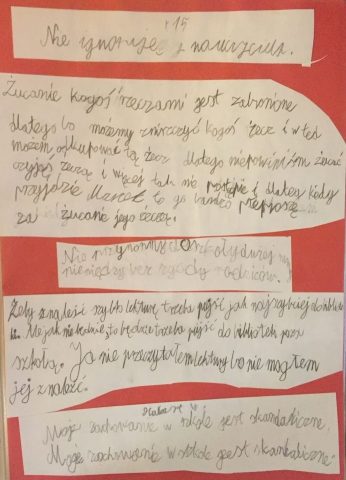 r 15
Nie ignoruję nauczyciela.
Żucanie kogoś rzeczami jest zabronione
dlatego bo możemy zniszczyć kogoś żecz i wted
możem odkupować tą żecz dlatego niepowiniśm żucać
czyjąś żeczą i więcej tak nie i dlatego kiedy
przyjdzie to go bardzo
za żucanie jego żeczą.
Nie przynosimy do szkoły dużej
pieniędzy bez zgody rodziców.
Żeby znaleść szybko lekturę trzeba pujść jak najszybciej do
jak nie będzie to będzie trzeba pujść do bibliotek poza
szkołą. Ja nie przeczytałem lektury bo nie mogłem
jej znaleść.
Moje zachowanie w szkole jest skandaliczne.
Moje zachowanie w szkole jest skandaliczne